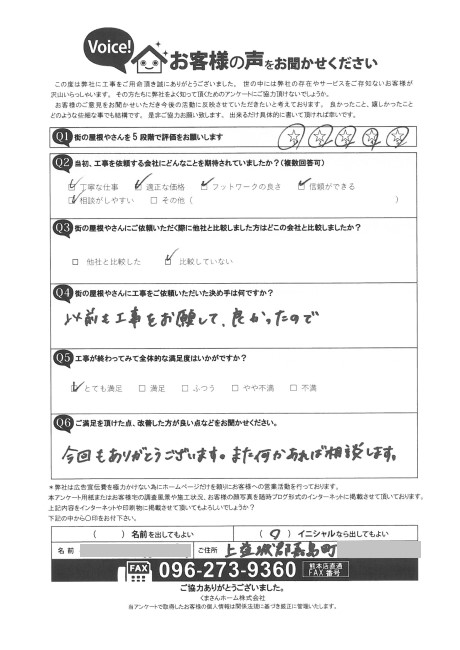 Voice!
お客様の声をお聞かせください
この度は弊社に工事をご用命頂き誠にありがとうございました。世の中には弊社の存在やサービスをご存知ないお客様が
沢山いらっしゃいます。その方たちに弊社をよく知って頂くためのアンケートにご協力頂けないでしょうか。
お客様のご意見をお聞かせいただき今後の活動に反映させていただきたいと考えております。良かったこと、嬉しかったこと
どのような些細な事でも結構です。是非ご協力お願い致します。出来るだけ具体的に書いて頂ければ幸いです。
Q1 街の屋根やさんを5段階で評価をお願いします
Q2 当初、工事を依頼する会社にどんなことを期待されていましたか？(複数回答可)
丁寧な仕事 適正な価格 フットワークの良さ 信頼ができる
相談がしやすい その他 ( )
Q3 街の屋根やさんにご依頼いただく際に他社と比較しました方はどこの会社と比較しましたか？
他社と比較した 比較していない
Q4 街の屋根やさんに工事をご依頼いただいた決め手は何ですか？
以前も工事をお願して、良かったので
Q5 工事が終わってみて全体的な満足度はいかがですか？
とても満足 満足 ふつう やや不満 不満
Q6 ご満足を頂けた点、改善した方が良い点などをお聞かせください。
今回もありがとうございます。また何かあれば相談します。
＊弊社は広告宣伝費を極力かけない為にホームページだけを頼りにお客様への営業活動を行っております。
本アンケート用紙またはお客様宅の調査風景や施工状況、お客様の顔写真を随時ブログ形式のインターネットに掲載させて頂いております。
上記内容をインターネットや印刷物に掲載させて頂いてもよろしいでしょうか？
下記の中から〇印をお付下さい。
( ) 名前を出してもよい ( ○ ) イニシャルなら出してもよい
名前 ご住所 上益城郡嘉島町
FAX 096-273-9360 熊本店直通 FAX番号
ご協力ありがとうございました。
くまさんホーム株式会社
当アンケートで取得したお客様の個人情報は関係法規に基づき厳正に管理いたします。